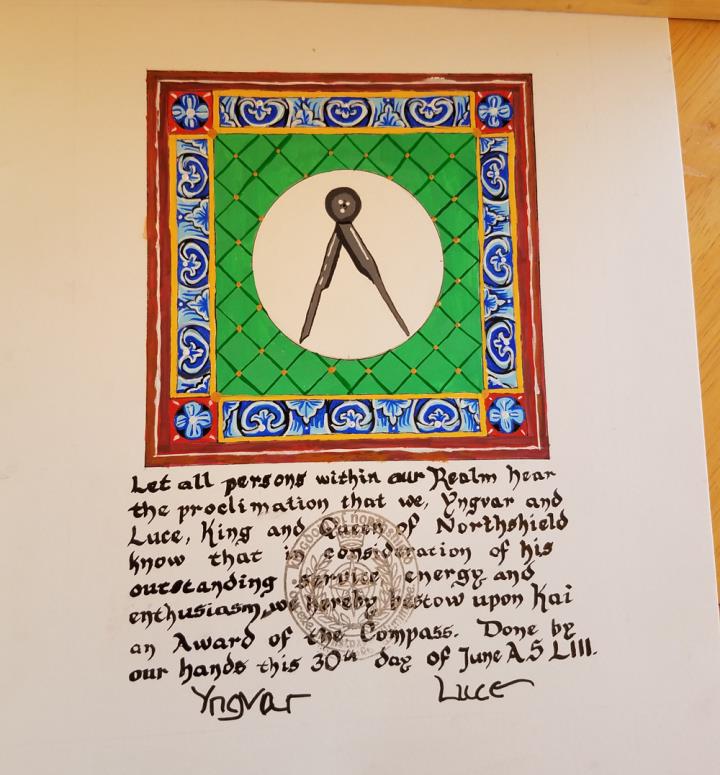 Let all persons within our Realm hear
the proclimation that we, Yngvar and
Luce, King and Queen of Northshield
know that in consideration of his
outstanding service energy and
enthusiasm, we hereby bestow upon Kai
an Award of the Compass. Done by
our hands this 30th day of June A.S LIII.
Yngvar Luce